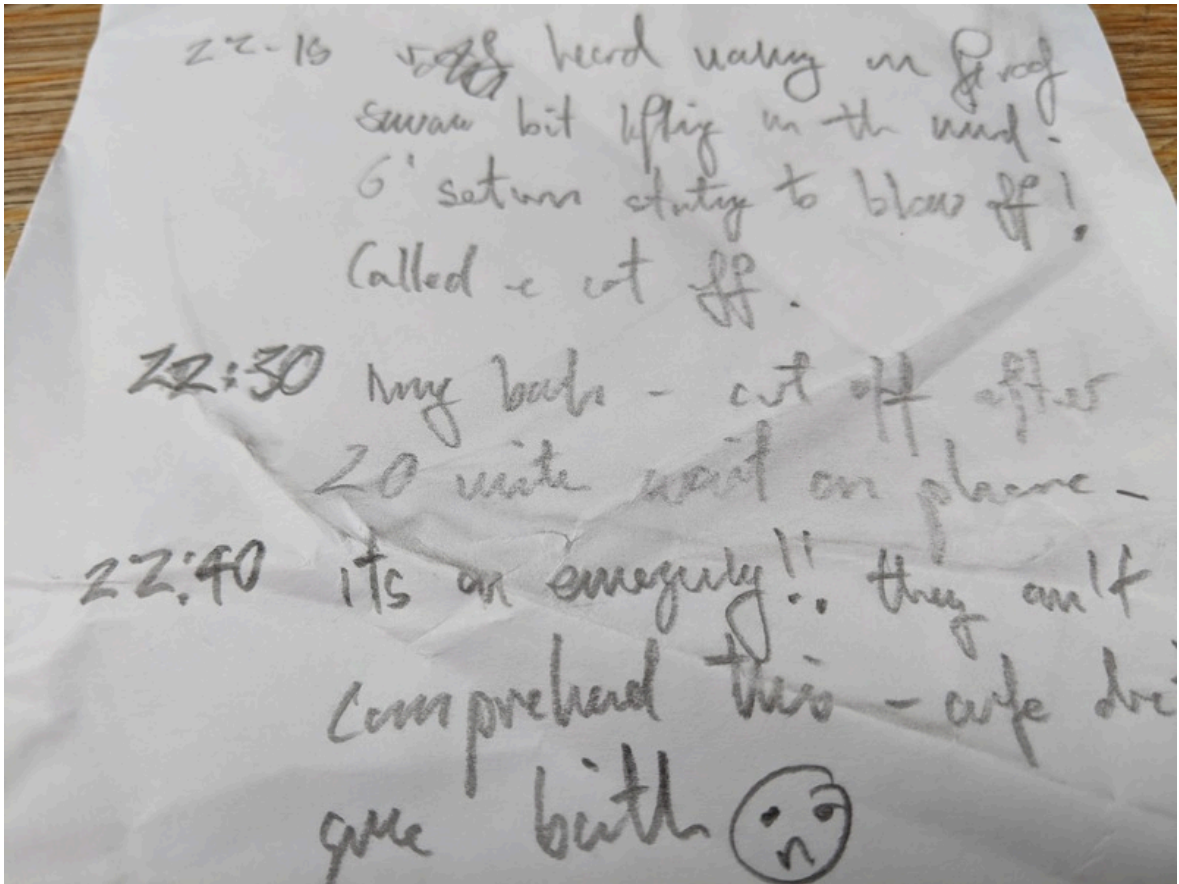 22-15 heard noises on roof
bit lifting in the wind.
6' section starting to blow off!
Called - cut off.
22:30 ring back - cut off after
20 minute wait on phone -
22:40 its an emergency!! they can't
comprehend this - wife
give birth